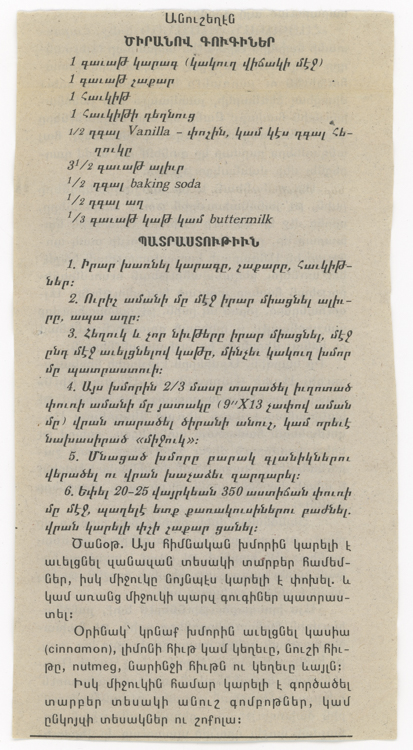 Անուշեղէն
ԾԻՐԱՆՈՎ ԳՈՒԳԻՆԵՐ
1 գաւաթ կարագ (կակուղ վիճակի մէջ)
1 գաւաթ շաքար
1 Հաւկիթ
1 Հաւկիթի դեղնուց
1/2 դգալ Vanilla – փոշին, կամ կէս դգալ Հե-
ղուկը
3 1/2 գաւաթ ալիւր
1/2 դգալ baking soda
1/2 դգալ աղ
1/3 գաւաթ կաթ կամ buttermilk
ՊԱՏՐԱՍՏՈՒԹԻՒՆ
1. Իրար խառնել կարագը, շաքարը, Հաւկիթ-
ներ:
2. Ուրիշ ամանի մը մէջ իրար միացնել ալիւ-
րը, ապա աղը:
3. Հեղուկ և չոր նիւթերը իրար միացնել, մէջ
ընդ մէջ աւելցնելով կաթը, մինչեւ կակուղ խմոր
մը պատրաստուի:
4. Այս խմորին 2/3 մասը տարածել իւղոտած
փուռի ամանի մը յատակը (9"X13 չափով աման
մը) վրան տարածել ծիրանի անուշ, կամ որեւէ
նախասիրած «միջուկ»:
5. Մնացած խմորը բարակ գլանիկներու
վերածել ու վրան խաչաձեւ զարդարել:
6. Եփել 20–25 վայրկեան 350 աստիճան փուռի
մը մէջ, պաղելէ ետք քառակուսիներու բաժնել.
վրան կարելի փշի շաքար ցանել:
Ծանօթ. Այս հիմնական խմորին կարելի է
աւելցնել զանազան տեսակի տարբեր համեմ-
ներ, իսկ միջուկը նոյնպէս կարելի է փոխել. և
կամ առանց միջուկի պարզ գուգիներ պատրաս-
տել:
Օրինակ՝ կրնաք խմորին աւելցնել կասիա
(cinnamon), լիմոնի հիւթ կամ կեղեւը, նուշի հիւ-
թը, nutmeg, նարինջի հիւթն ու կեղեւը ևայլն:
Իսկ միջուկին համար կարելի է գործածել
տարբեր տեսակի անուշ գոմբոթներ, կամ
ընկոյզի տեսակներ ու շոքոլա: